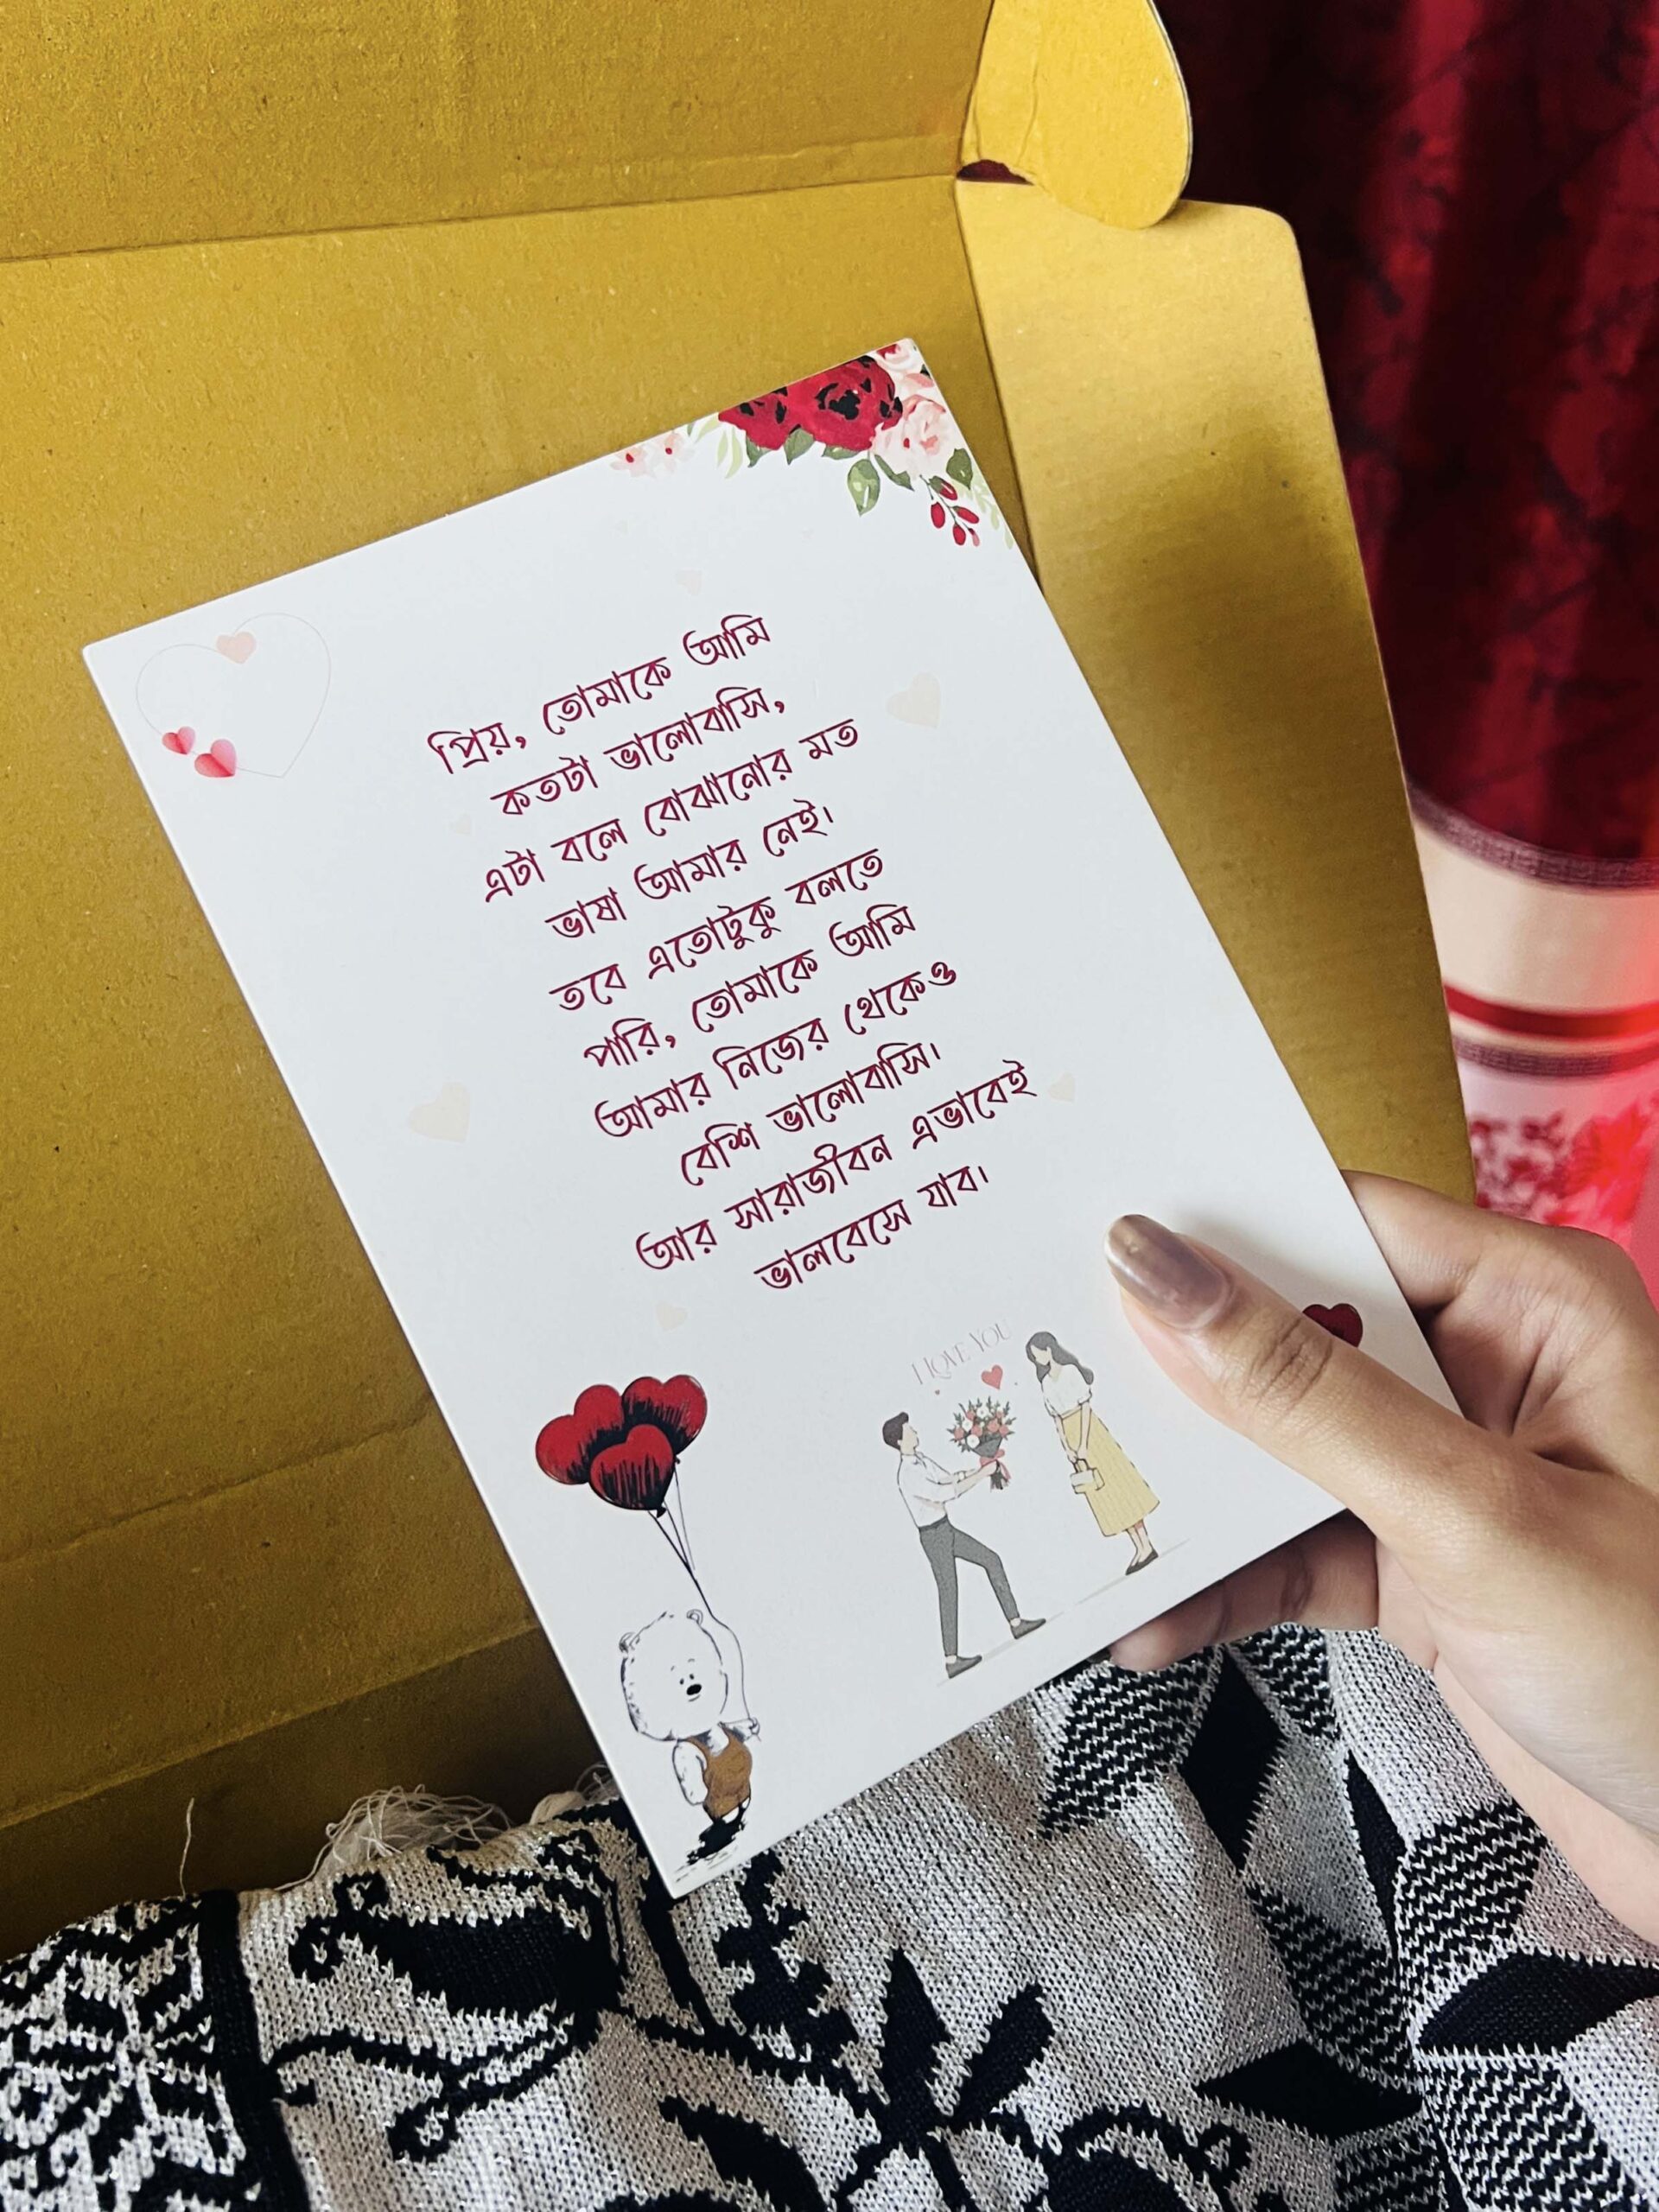 প্রিয়, তোমাকে আমি
কতটা ভালোবাসি,
এটা বলে বোঝানোর মত
ভাষা আমার নেই।
তবে এতোটুকু বলতে
পারি, তোমাকে আমি
আমার নিজের থেকেও
বেশি ভালোবাসি।
আর সারাজীবন এভাবেই
ভালবেসে যাব।
I LOVE YOU